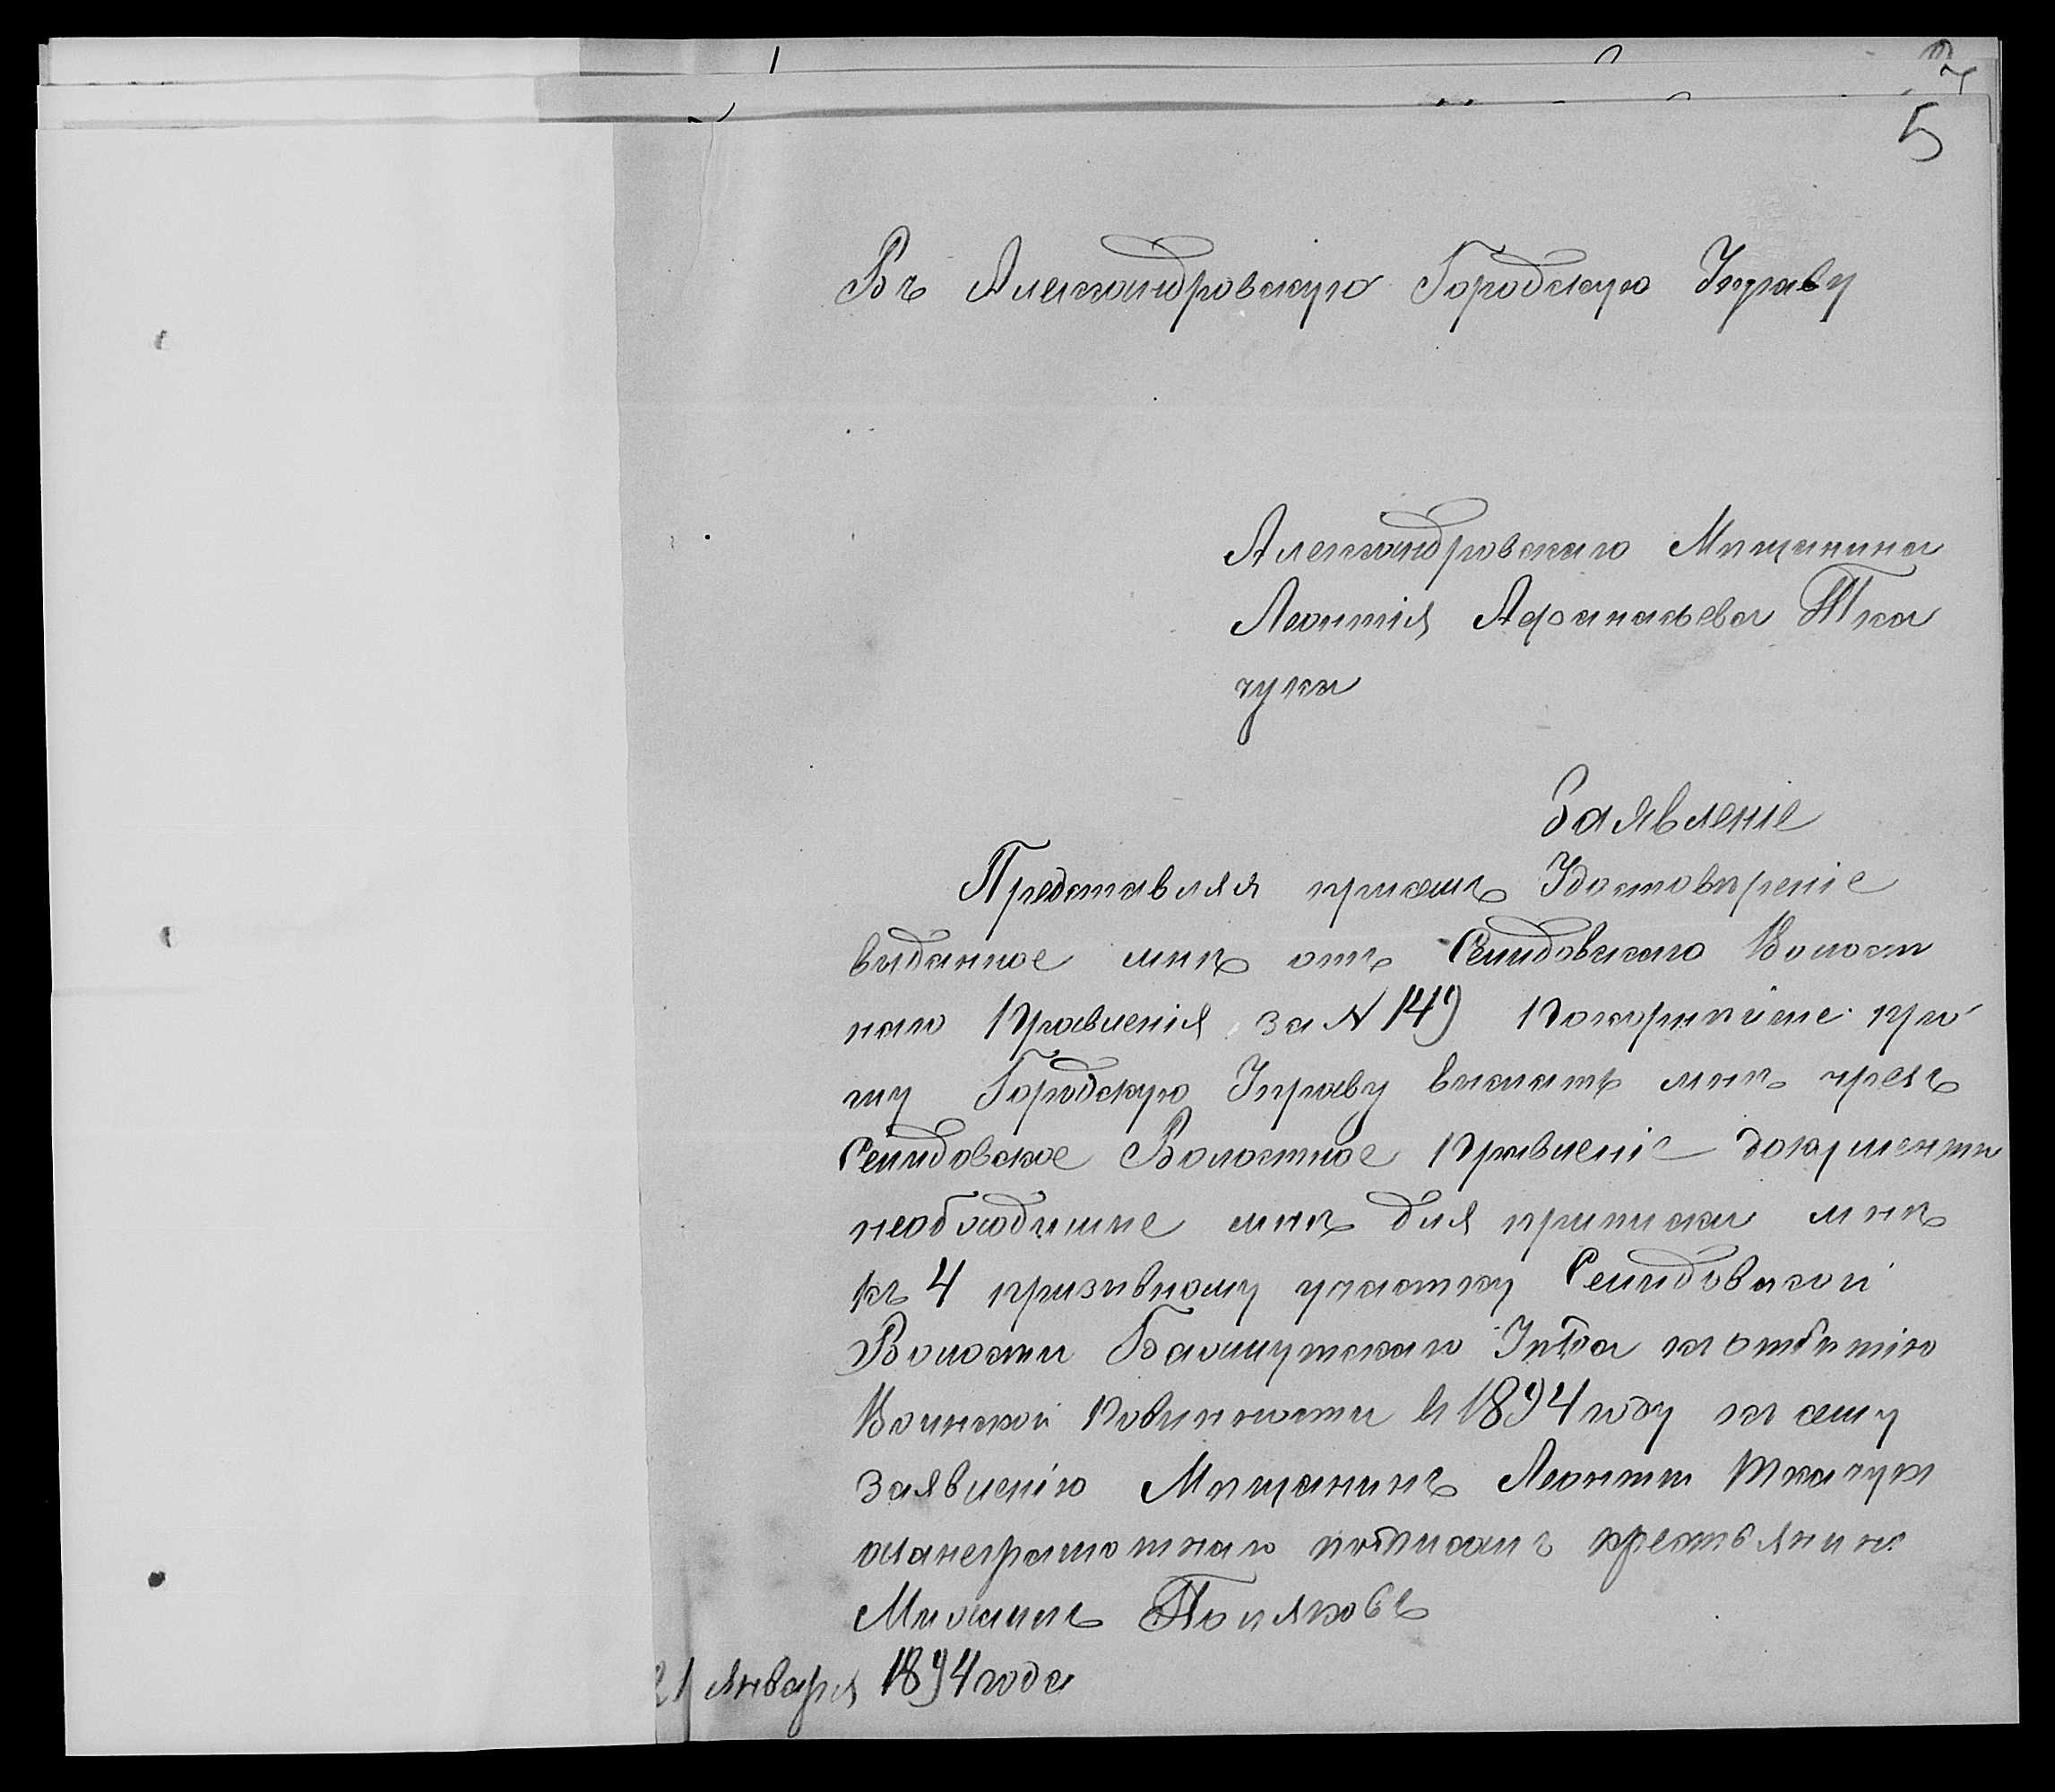 5
Въ Александровскую Городскую Управу
Александровскаго Мѣщанина
Леонтія Афанасьева Тка
чука
Заявленіе
Представляя присемъ Удостовѣреніе
выданное мнѣ отъ Селидовскаго Волост
наго Правленія за № 149 Покорнѣйше про
шу Городскую Управу выслать мнѣ чрезъ
Селидовское Волостное Правленіе документы
необходимые мнѣ для приписки мнѣ
къ 4 призывному участку Селидовской
Волости Бахмутскаго Уѣзда къ отбытію
Воинской Повинности в 1894 году къ сему
заявленію Мѣщанинъ Леонтій Ткачук
а за неграмотнаго подписалъ крестьянин
Михаилъ Поляковъ
21 января 1894 года